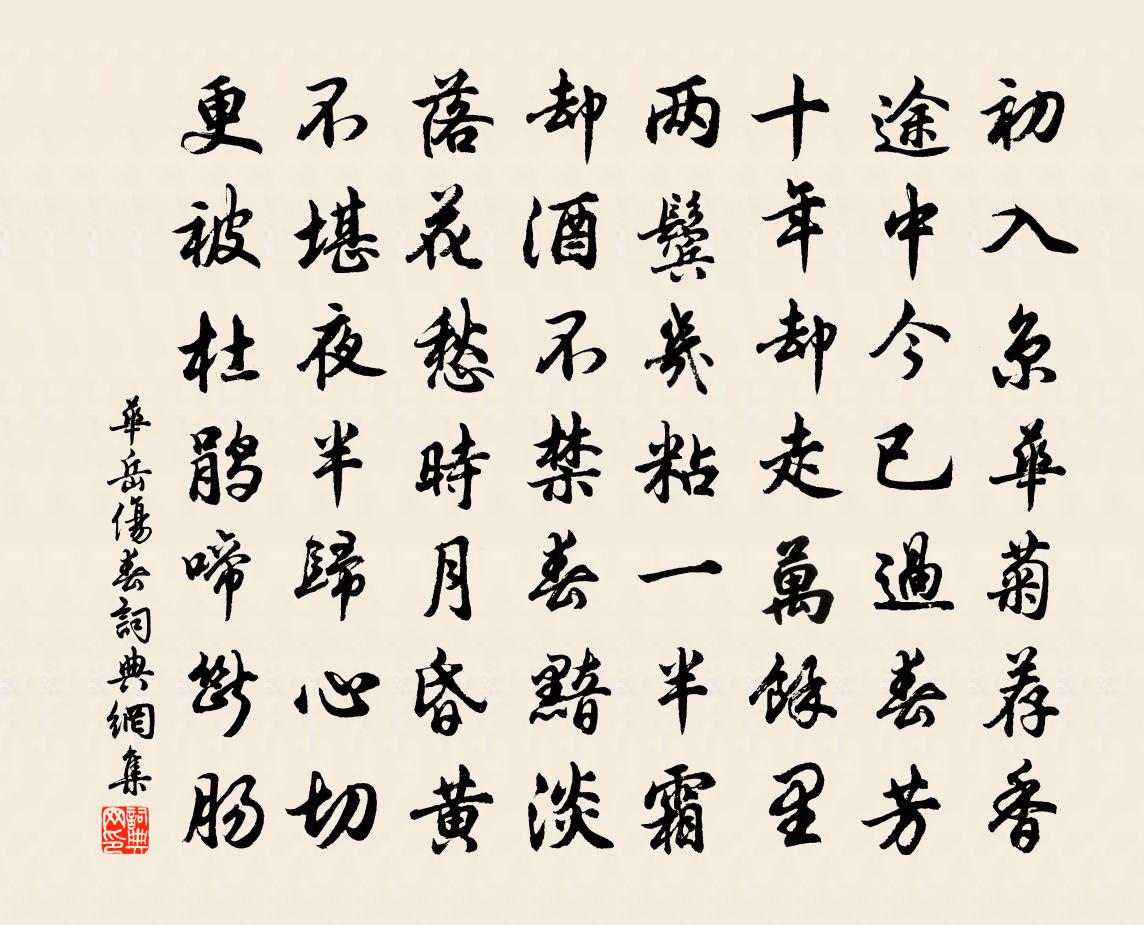 初入京華菊荐香
途中今已過春芳
十年却走萬餘里
两鬓幾粘一半霜
却酒不禁春黯淡
落花愁時月昏黄
不堪夜半歸心切
更被杜鹃啼斷肠
華岳傷春詞典網集
詞典网印